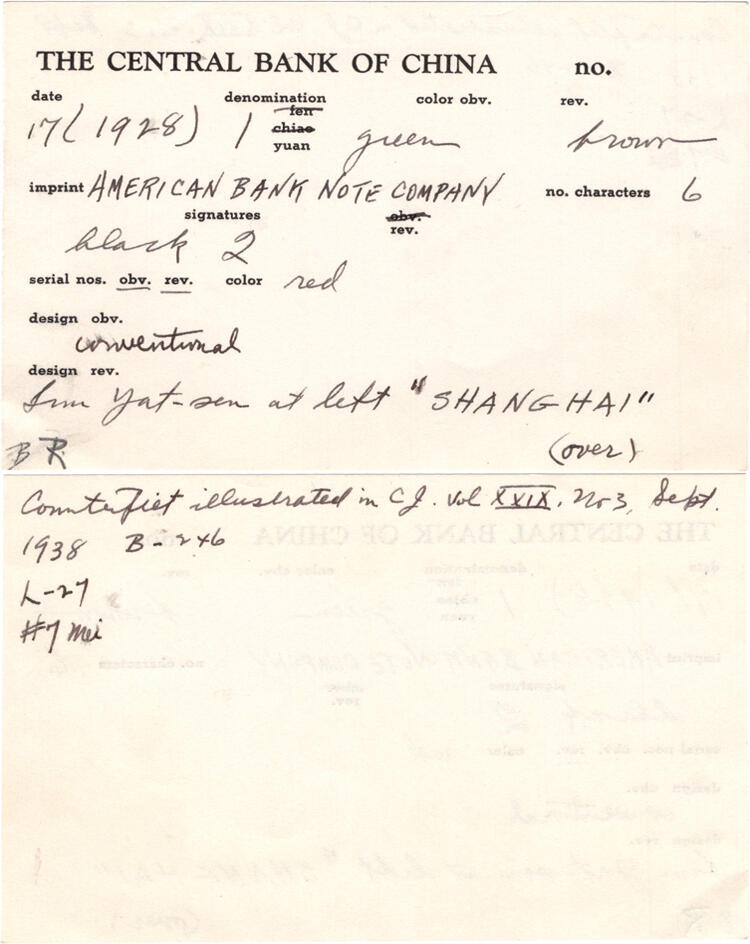 THE CENTRAL BANK OF CHINA no.
date denomination color obv. rev.
17 (1928) 1 fen chiao yuan green brown
imprint AMERICAN BANK NOTE COMPANY no. characters 6
signatures obv. rev.
black 2
serial nos. obv. rev. color red
design obv.
conventional
design rev.
Sun Yat-sen at left "SHANGHAI"
BR (over)
Counterfiet illustrated in C.J. Vol XXIX, No 3, Sept.
1938 B-246
L-27
#7 Mei